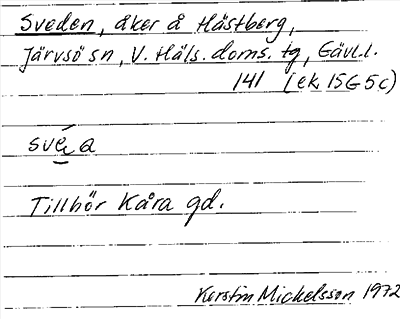 Sveden, åker å Hästberg,
Järvsö sn, V. Häls. doms. tg, Gävl.l.
141 (ek. 15G5c)
své̯a
Tillhör Kåra gd.
Kerstin Mickelsson 1972